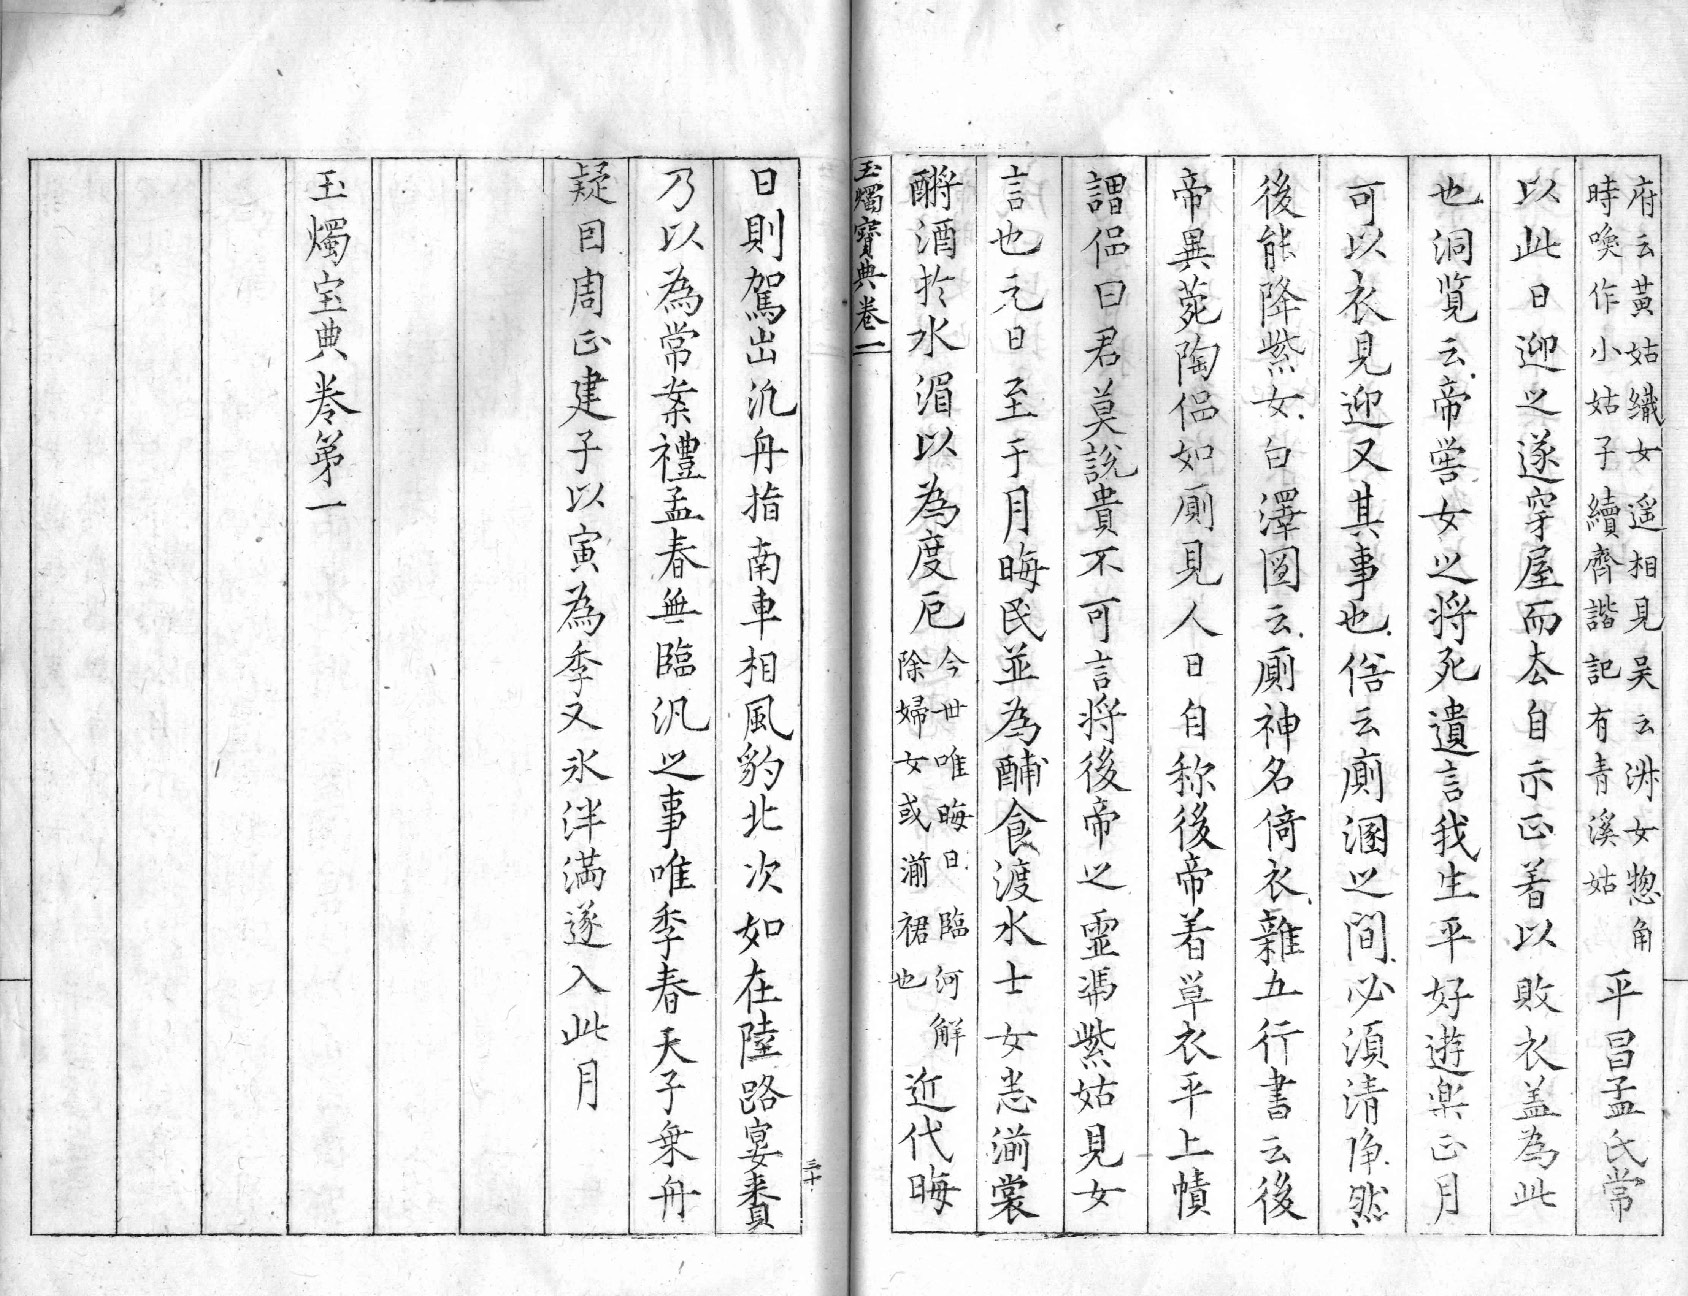 府云黃姑織女遥相見吴云淋女惣角
時喚作小姑子續齊諧記有青溪姑
平昌孟氏常
以此日迎之遂穿屋而去自示正着以敗衣盖為此
也洞覧云帝嚳女之将死遺言我生平好遊楽正月
可以衣見迎又其事也俗云廁溷之間必須清浄然
後能降紫女白澤圖云廁神名倚衣雜五行書云後
帝異菀陶侣如廁見人日自称後帝着草衣平上幘
謂侣曰君莫説貴不可言将後帝之霊馮紫姑見女
言也元日至于月晦民並為酺食渡水士女悉湔裳
酹酒扵水湄以為度厄
今世唯晦日臨河解
除婦女或湔裙也
近代晦
玉燭寶典卷一
三十
日則駕出氿舟指南車相風豹北次如在陸路宴賚
乃以為常案禮孟春無臨汎之事唯季春天子乗舟
疑因周正建子以寅為季又氷泮満遂入此月
玉燭宝典巻第一